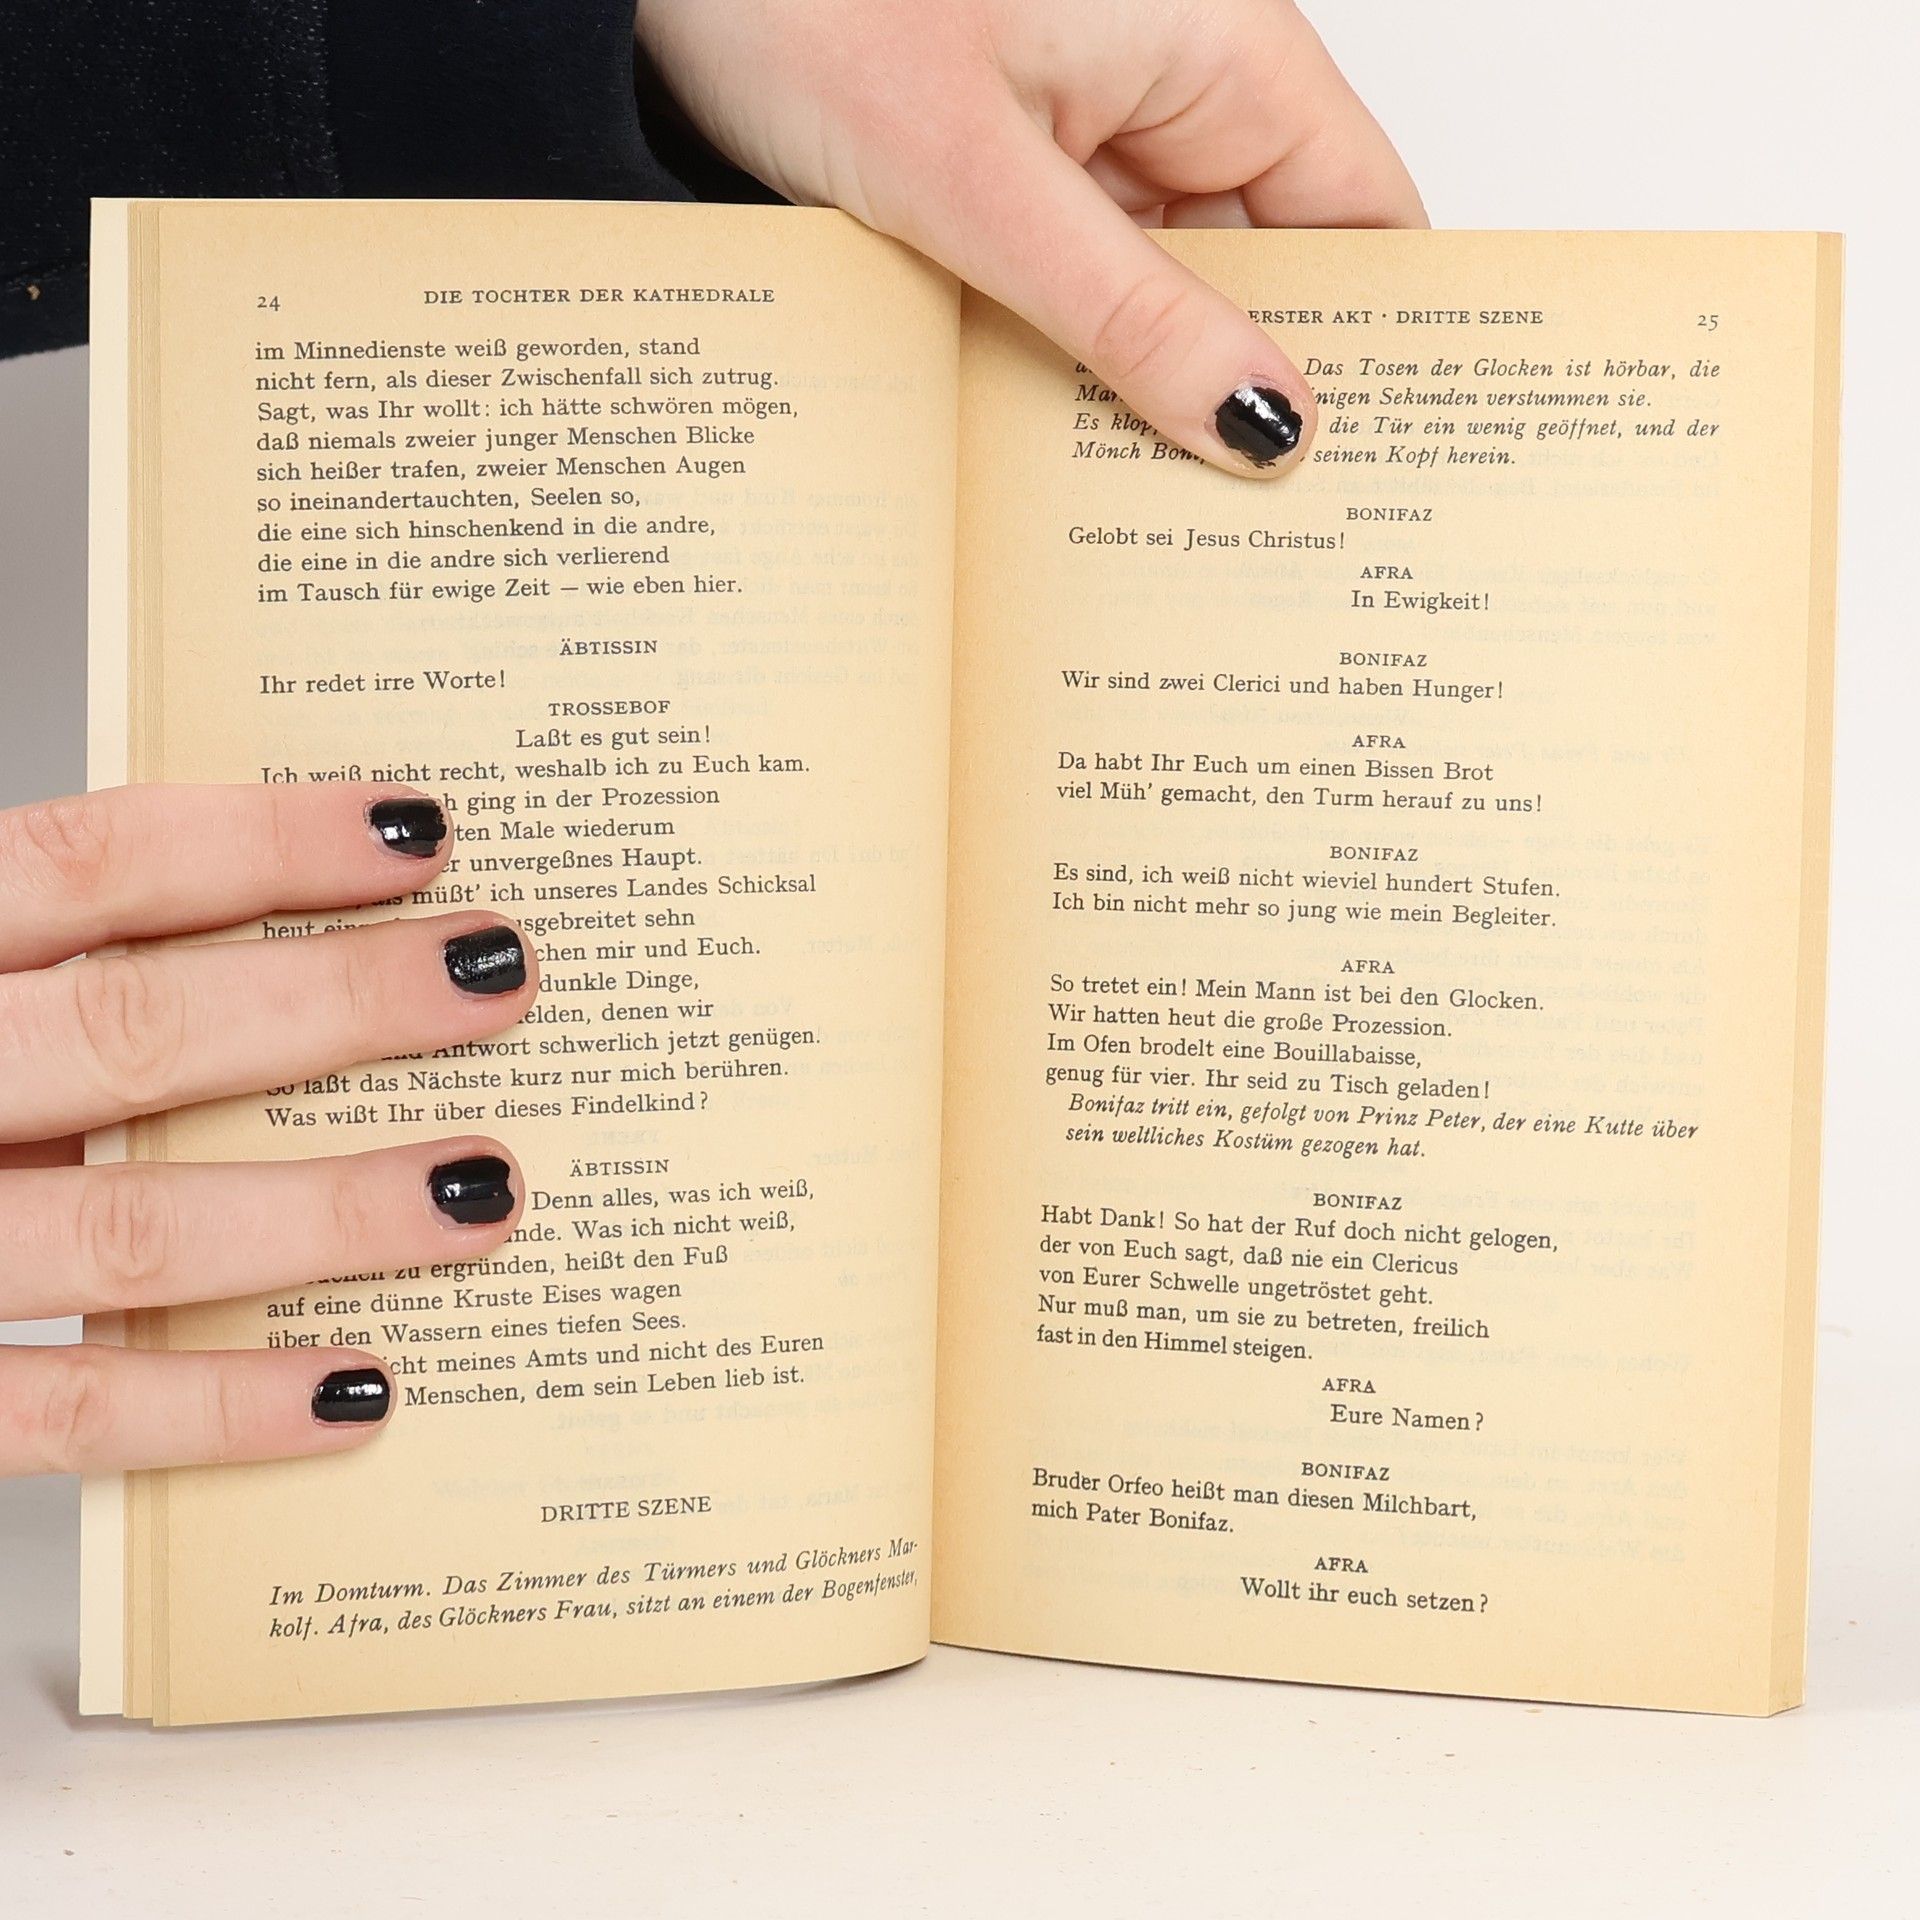 24 DIE TOCHTER DER KATHEDRALE
im Minnedienste weiß geworden, stand
nicht fern, als dieser Zwischenfall sich zutrug.
Sagt, was Ihr wollt: ich hätte schwören mögen,
daß niemals zweier junger Menschen Blicke
sich heißer trafen, zweier Menschen Augen
so ineinandertauchten, Seelen so,
die eine sich hinschenkend in die andre,
die eine in die andre sich verlierend
im Tausch für ewige Zeit – wie eben hier.
ÄBTISSIN
Ihr redet irre Worte!
TROSSEBOF
Laßt es gut sein!
Ich weiß nicht recht, weshalb ich zu Euch kam.
ging in der Prozession
Male wiederum
unvergeßnes Haupt.
müßt' ich unseres Landes Schicksal
heut sehn
mir und Euch.
dunkle Dinge,
denen wir
Antwort schwerlich jetzt genügen.
So laßt das Nächste kurz nur mich berühren.
Was wißt Ihr über dieses Findelkind?
ÄBTISSIN
Denn alles, was ich weiß,
Was ich nicht weiß,
zu ergründen, heißt den Fuß
auf eine dünne Kruste Eises wagen
über den Wassern eines tiefen Sees.
meines Amts und nicht des Euren
Menschen, dem sein Leben lieb ist.
DRITTE SZENE
Im Domturm. Das Zimmer des Türmers und Glöckners Mar-
kolf. Afra, des Glöckners Frau, sitzt an einem der Bogenfenster,
ERSTER AKT · DRITTE SZENE 25
Das Tosen der Glocken ist hörbar, die
Sekunden verstummen sie.
Es die Tür ein wenig geöffnet, und der
Mönch seinen Kopf herein.
BONIFAZ
Gelobt sei Jesus Christus!
AFRA
In Ewigkeit!
BONIFAZ
Wir sind zwei Clerici und haben Hunger!
AFRA
Da habt Ihr Euch um einen Bissen Brot
viel Müh' gemacht, den Turm herauf zu uns!
BONIFAZ
Es sind, ich weiß nicht wieviel hundert Stufen.
Ich bin nicht mehr so jung wie mein Begleiter.
AFRA
So tretet ein! Mein Mann ist bei den Glocken.
Wir hatten heut die große Prozession.
Im Ofen brodelt eine Bouillabaisse,
genug für vier. Ihr seid zu Tisch geladen!
Bonifaz tritt ein, gefolgt von Prinz Peter, der eine Kutte über
sein weltliches Kostüm gezogen hat.
BONIFAZ
Habt Dank! So hat der Ruf doch nicht gelogen,
der von Euch sagt, daß nie ein Clericus
von Eurer Schwelle ungetröstet geht.
Nur muß man, um sie zu betreten, freilich
fast in den Himmel steigen.
AFRA
Eure Namen?
BONIFAZ
Bruder Orfeo heißt man diesen Milchbart,
mich Pater Bonifaz.
AFRA
Wollt ihr euch setzen?